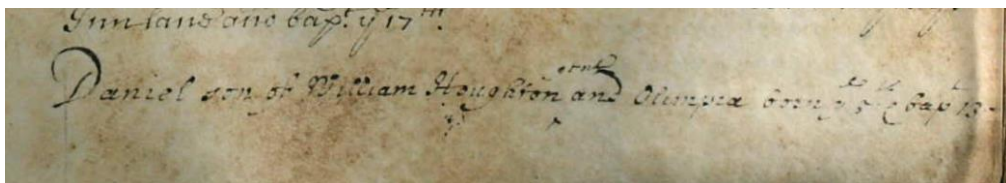 Inn lane and bapt ye 17th
Daniel son of William Houghton gent and Olimpia born ye 5th & bapt 13